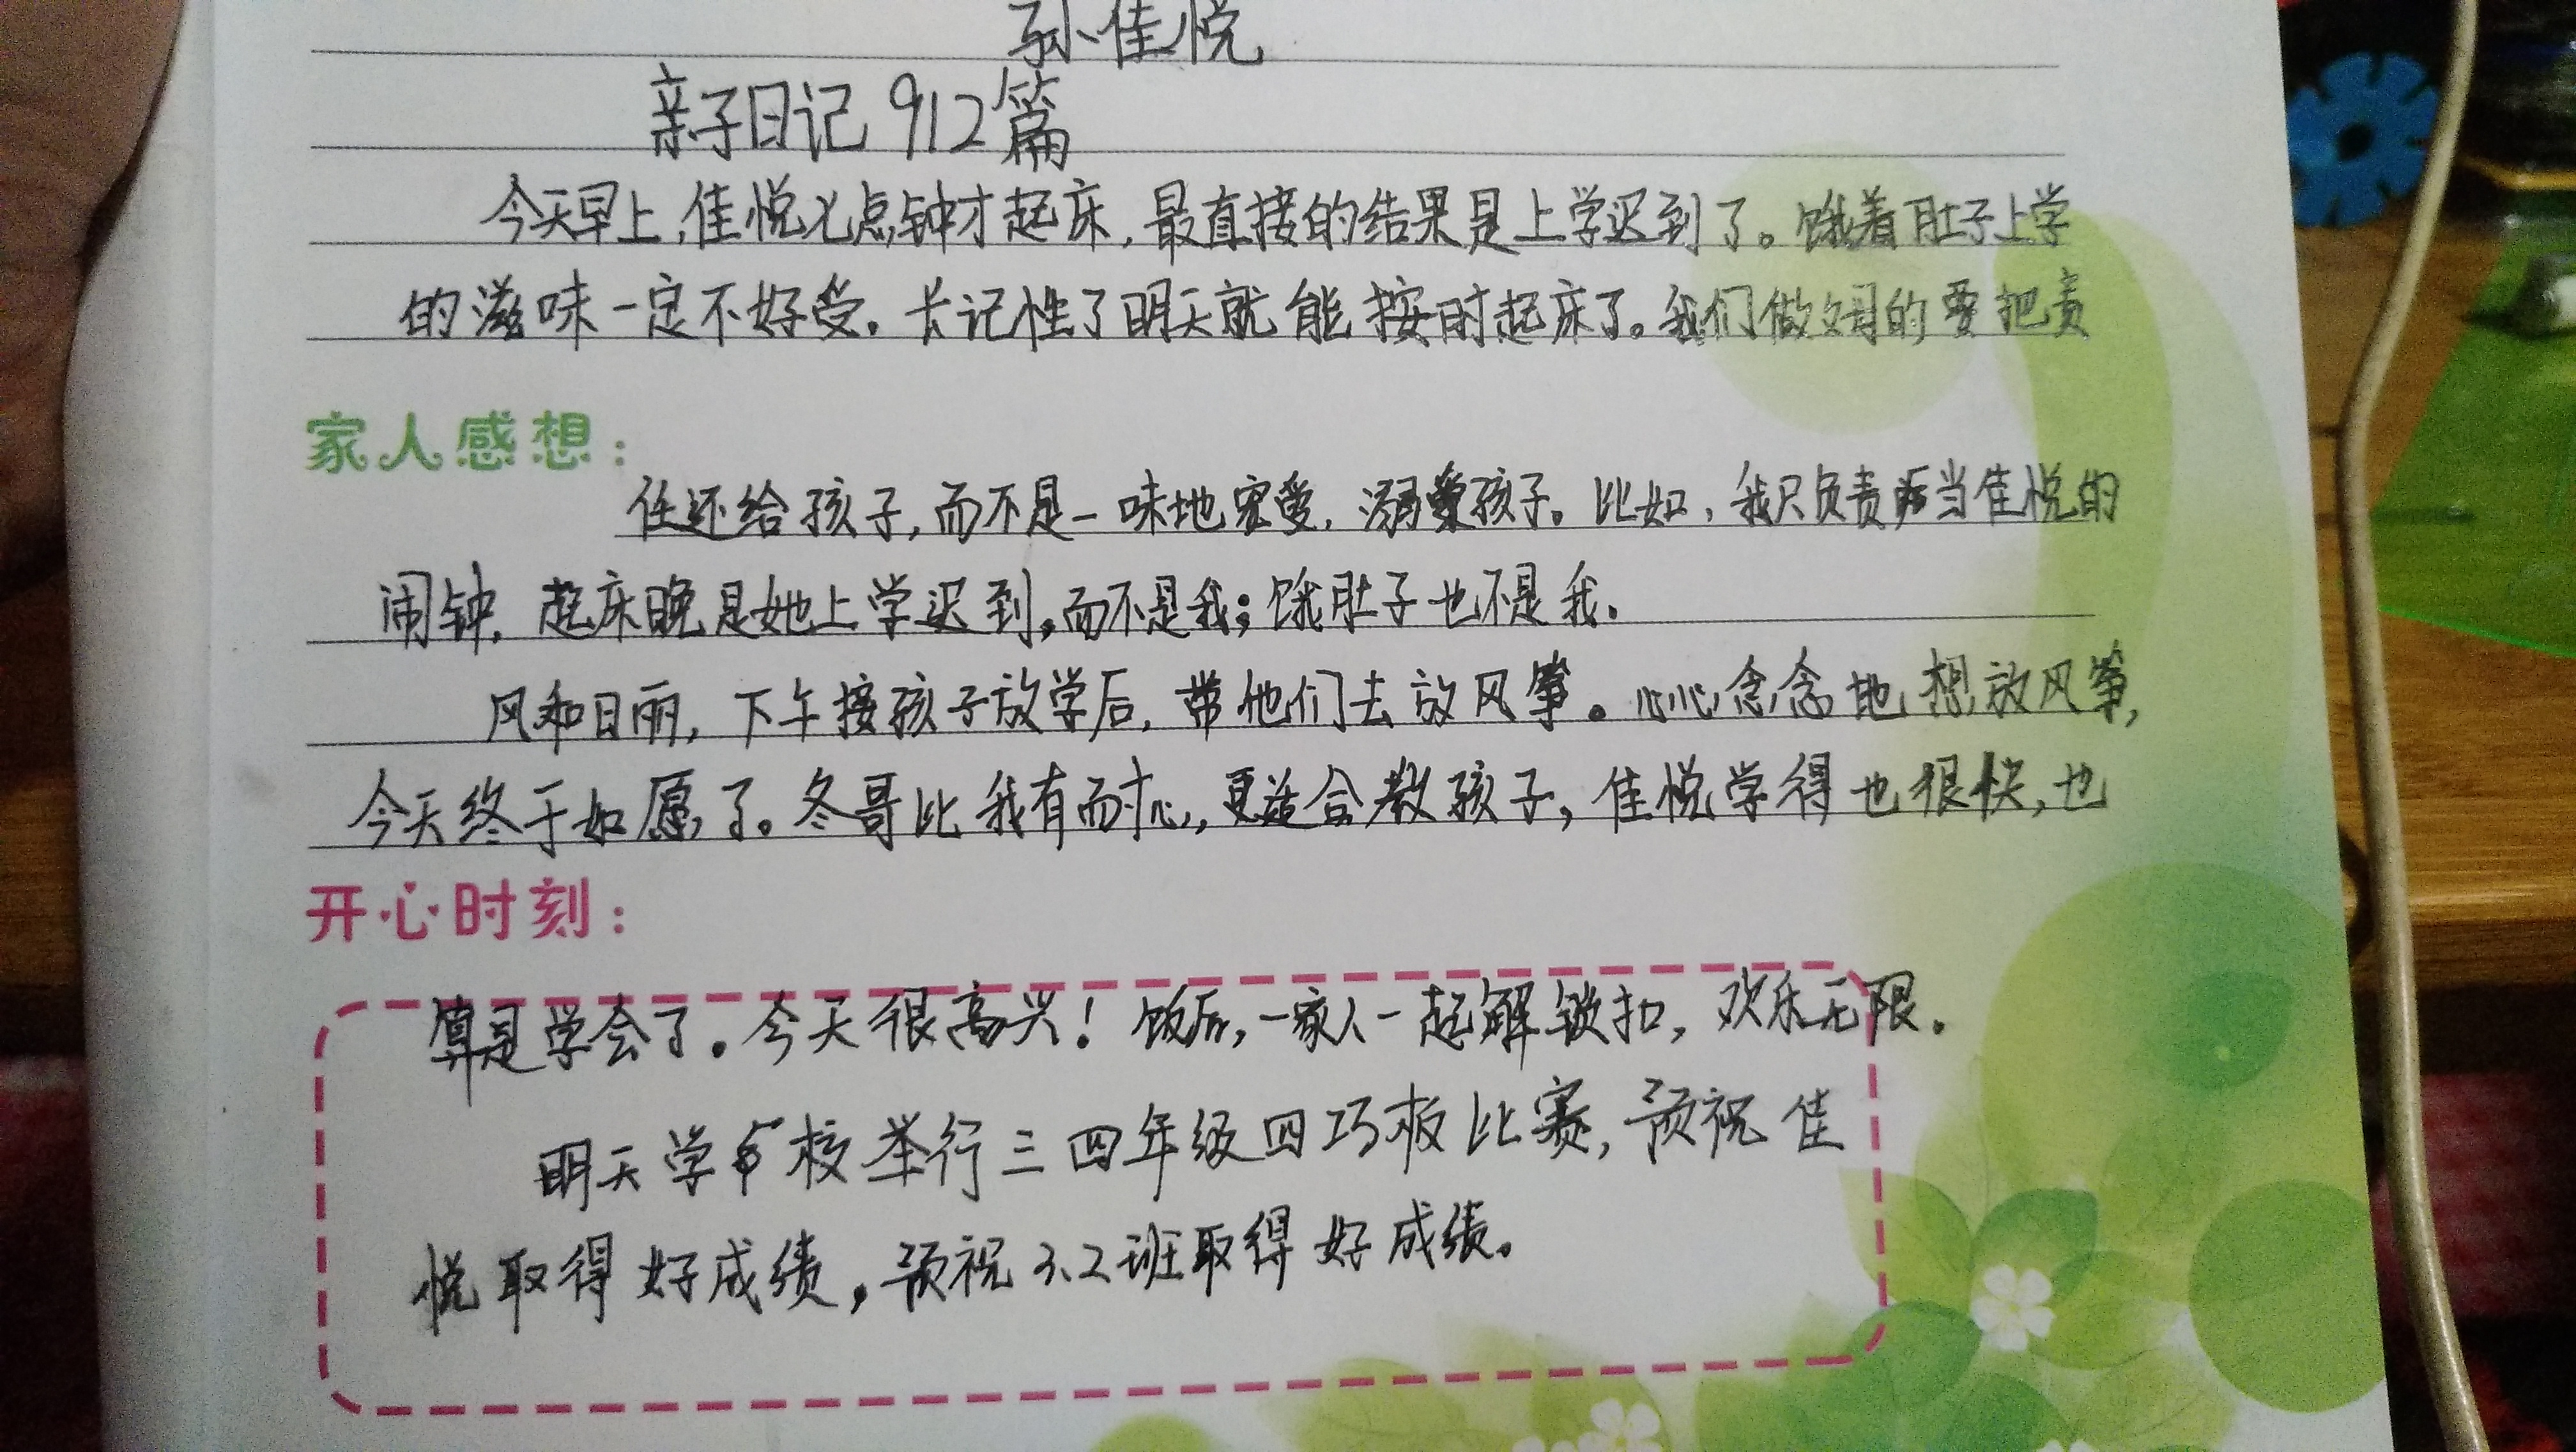 孙佳悦
亲子日记912篇
今天早上,佳悦七点钟才起床,最直接的结果是上学迟到了。饿着肚子上学
的滋味一定不好受。长记性了明天就能按时起床了。我们做父母的要把责
家人感想:
任还给孩子,而不是一味地宠爱,溺爱孩子。比如,我只负责当佳悦的
闹钟,起床晚是她上学迟到,而不是我;饿肚子也不是我。
风和日丽,下午接孩子放学后,带他们去放风筝。心心念念地想放风筝,
今天终于如愿了。冬哥比我有耐心,更适合教孩子,佳悦学得也很快,也
开心时刻:
算是学会了。今天很高兴!饭后,一家人一起解锁扣,欢乐无限。
明天学校举行三四年级四巧板比赛,预祝佳
悦取得好成绩,预祝3.2班取得好成绩。